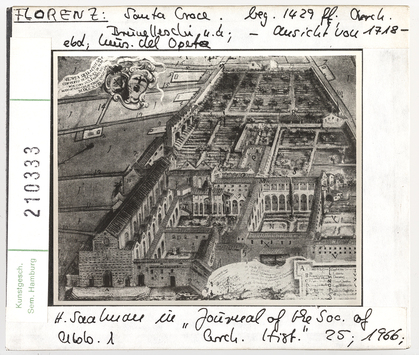 FLORENZ: Santa Croce. beg. 1429 ff. durch.
Brunelleschi, u.a; – Ansicht von 1718 –
ebd, Mus. del Opera
210333
Kunstgesch.
Sem. Hamburg
H. Saalman in "Journal of the Soc. of
Arch. Hist." 25; 1966;
Abb. 1